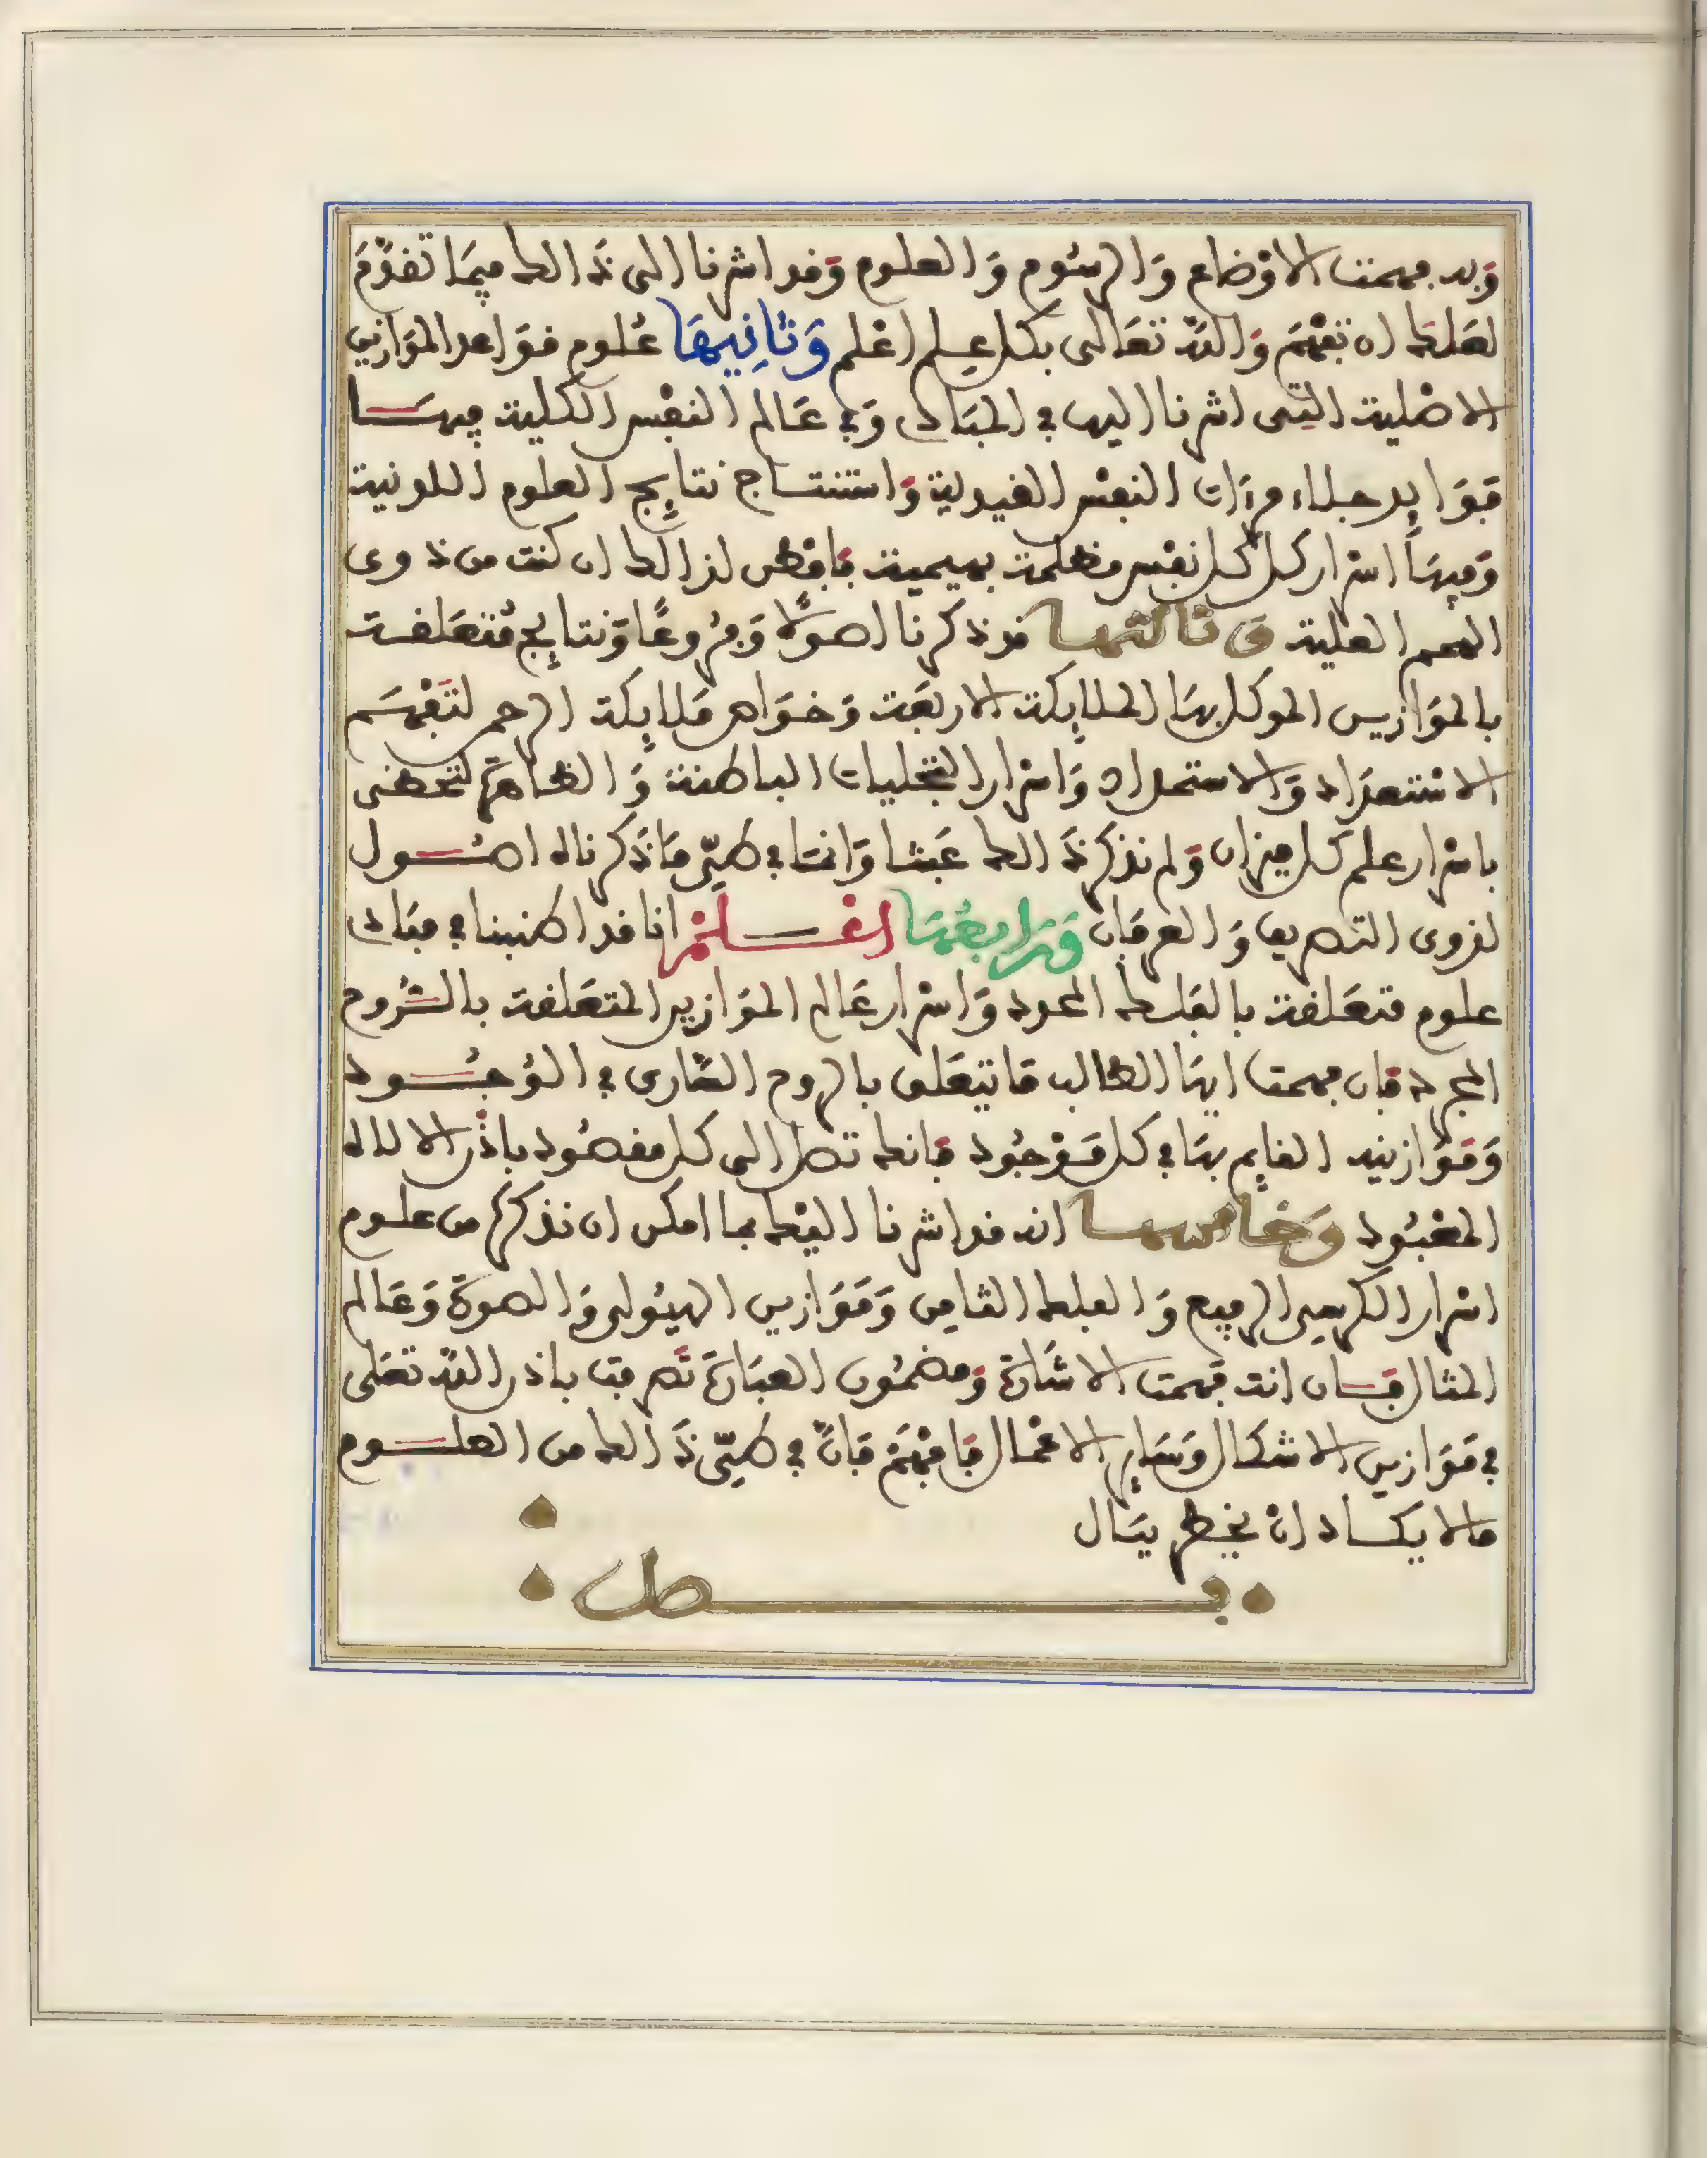 وبه فهمت الاوضاع والرسوم والعلوم وقد اشرنا الى ذالك فيما تقدم
لعلك ان تفهم والله تعالى بكل علم اعلم وثانيها علوم قواعد الموازين
الاصلية التى اشرنا اليها في المبادى وفي عالم النفس الكلية فيها
فوايد جلاء مرءات النفس واستنتاج نتايج العلوم اللدنية
وفيها اسرار كل كل نفس مظلمة بهيمية فافطن لذالك ان كنت من ذوى
الهمم العلية وثالثها قد ذكرنا اصولا وفروعا ونتايج متعلقة
بالموازين الموكل بها الملايكة الاربعة وخواص ملايكة الرحمن لتفهم
الاستعداد والاستمداد واسرار التجليات الباطنة والظاهرة لتحضى
باسرار علم كل ميزان ولم نذكر ذالك عبثا وانما في طي ما ذكرناه اصول
لذوى التصريف والعرفان ورابعها اعلم انا قد اطنبنا في مبادى
علوم متعلقة بالفلك المحدد واسرار عالم الموازين المتعلقة بالروح
المجرد فان فهمت ايها الطالب ما يتعلق بالروح السارى في الوجود
وموازينه القايم بها في كل موجود فانك تصل الى كل مقصود باذن الالاه
المعبود وخامسها انه قد اشرنا اليك بما امكن ان نذكره من علوم
اسرار الكرسى الرفيع والفلك الثامن وموازين الهيولى والصورة وعالم
المثال فان انت فهمت الاشارة ومضمون العبارة تصرفت باذن الله تعلى
في موازين الاشكال وساير الاعمال فافهم فان في طي ذالك من العلوم
مالا يكاد ان يخطر ببال
فصل